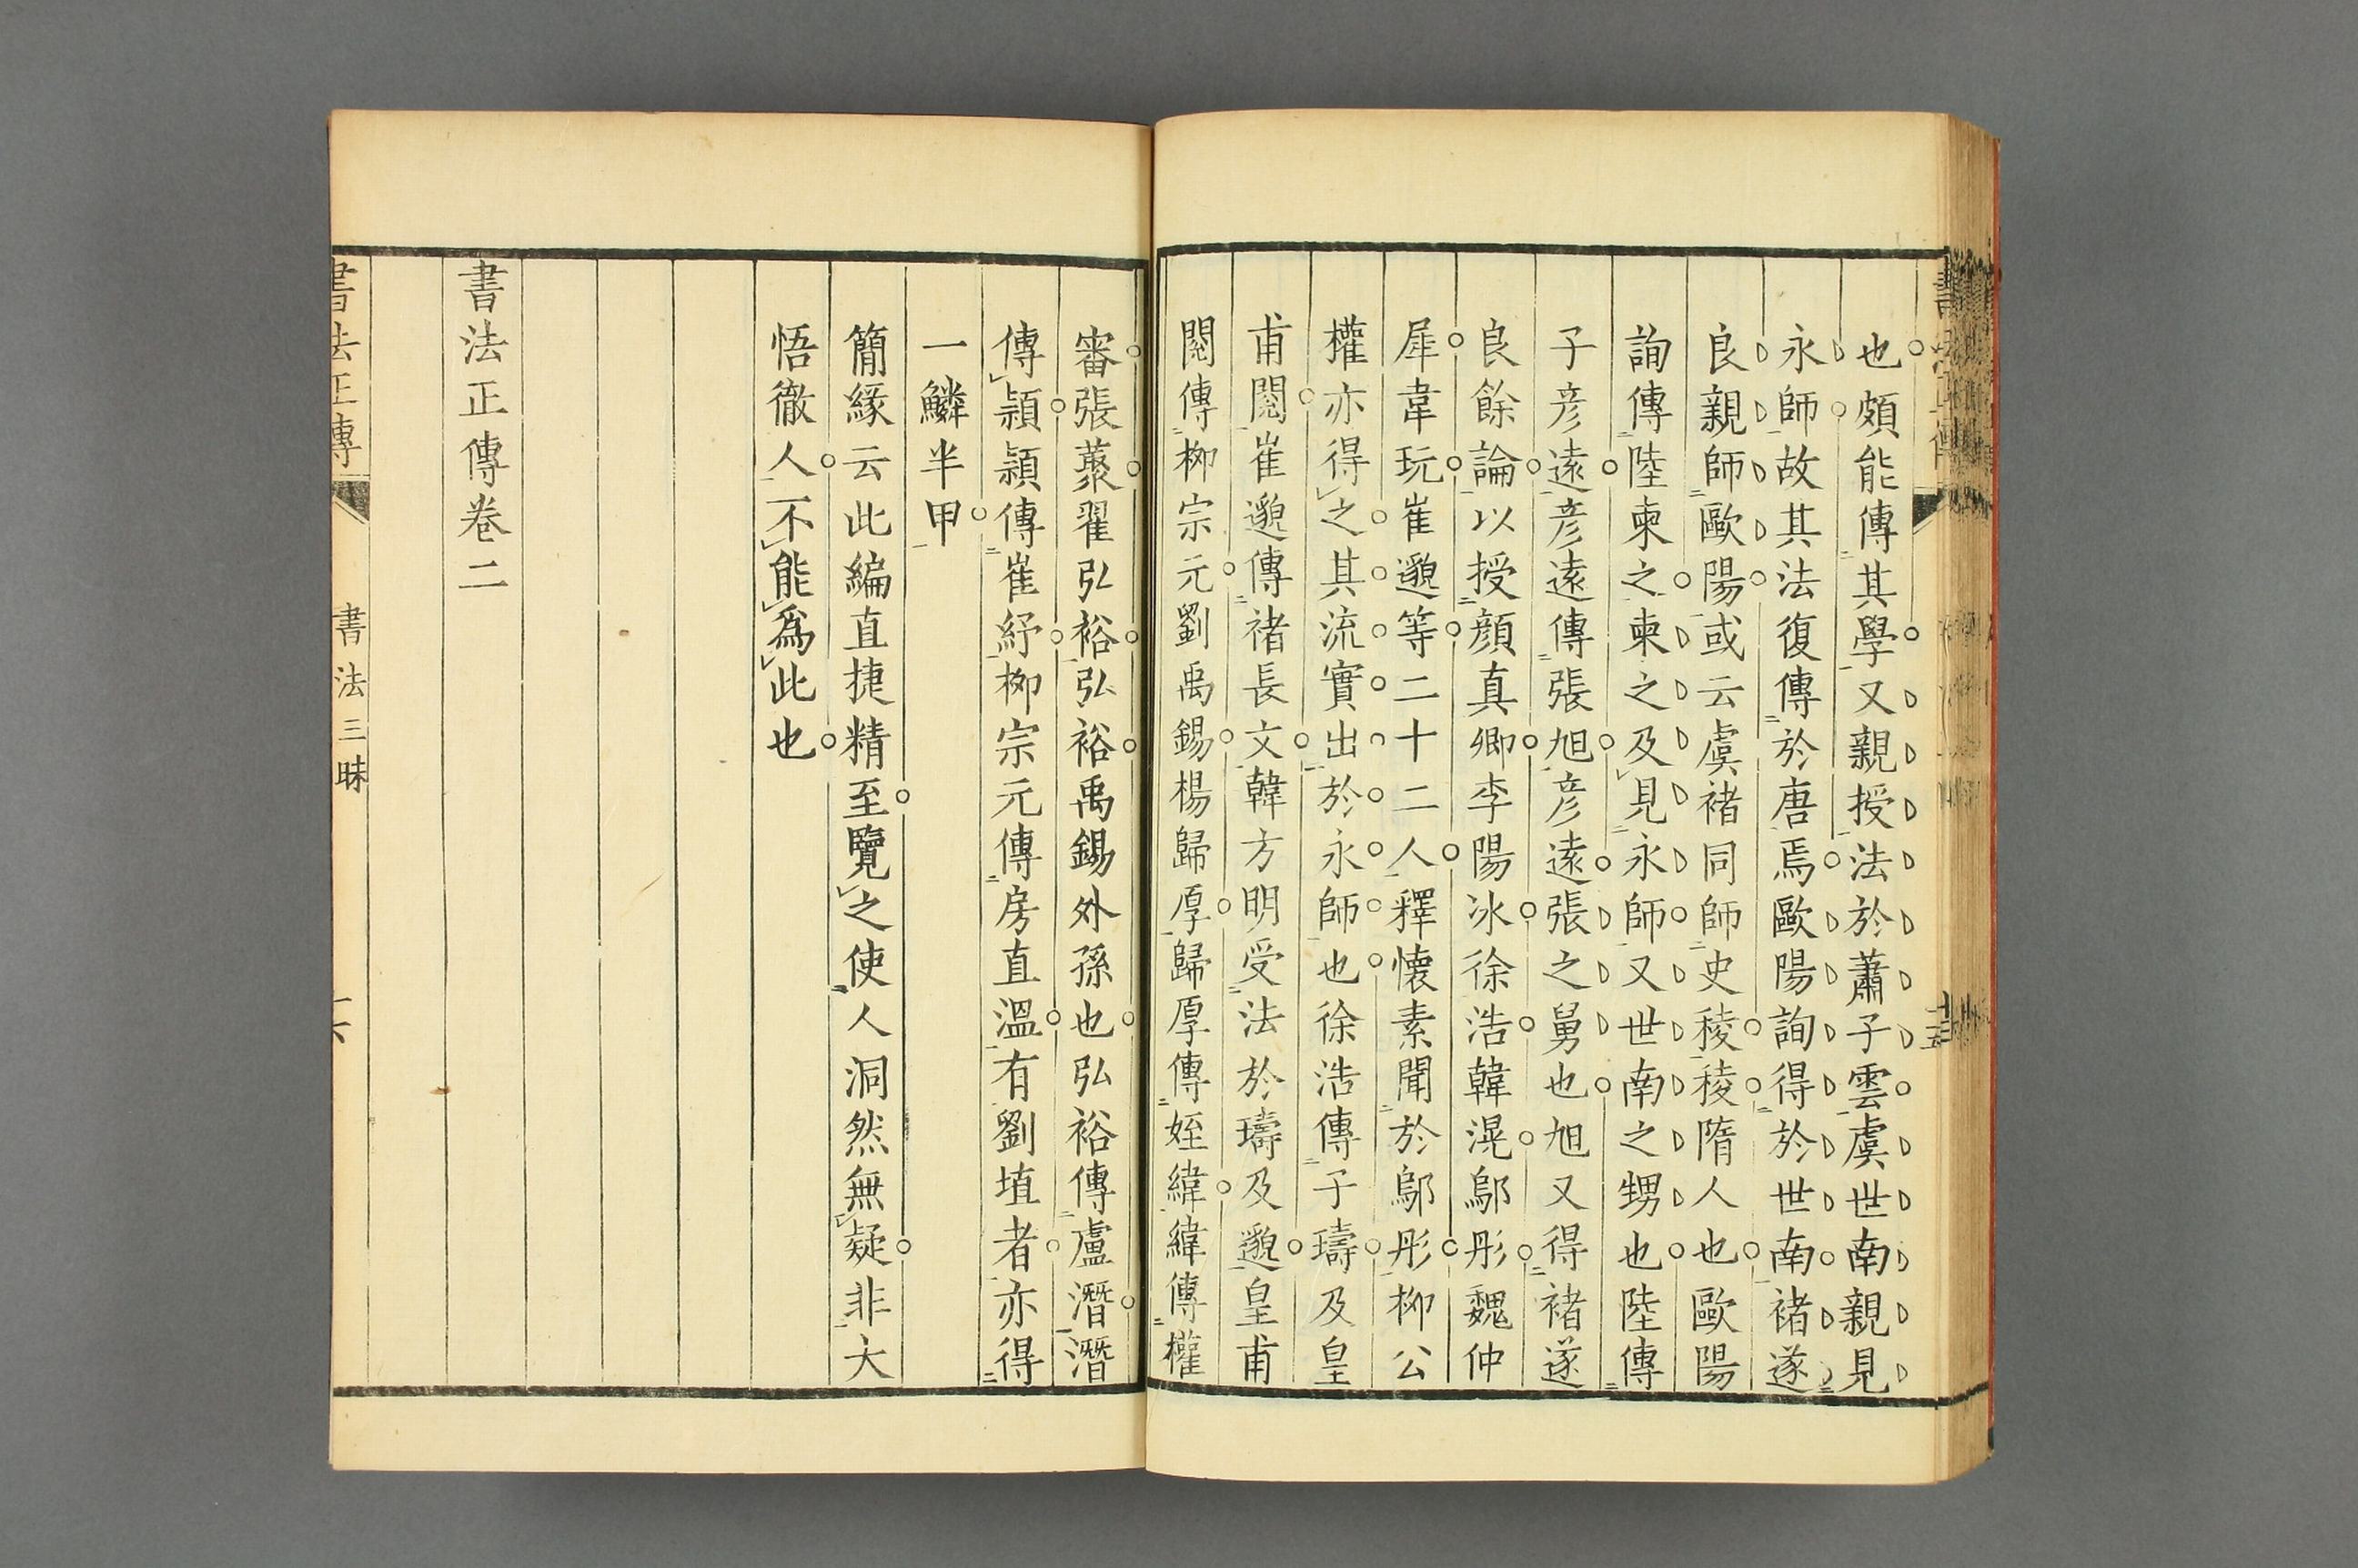 也頗能傳其學又親授法於蕭子雲虞世南親見
永師故其法復傳於唐焉歐陽詢得於世南褚遂
良親師歐陽或云虞褚同師史稜稜隋人也歐陽
詢傳陸柬之柬之及見永師又世南之甥也陸傳
子彥遠彥遠傳張旭彥遠張之舅也旭又得褚遂
良餘論以授顏真卿李陽冰徐浩韓滉鄔彤魏仲
犀韋玩崔邈等二十二人釋懷素聞於鄔彤柳公
權亦得之其流實出於永師也徐浩傳子璹及皇
甫閱崔邈傳褚長文韓方明受法於璹及邈皇甫
閱傳柳宗元劉禹錫楊歸厚歸厚傳姪緯緯傳權
審張蒙翟弘裕弘裕禹錫外孫也弘裕傳盧潛潛
傳頴頴傳崔紓柳宗元傳房直溫有劉埴者亦得
一鱗半甲
簡緣云此編直捷精至覽之使人洞然無疑非大
悟徹人不能爲此也
書法正傳卷二
書法正傳
書法三昧
十六